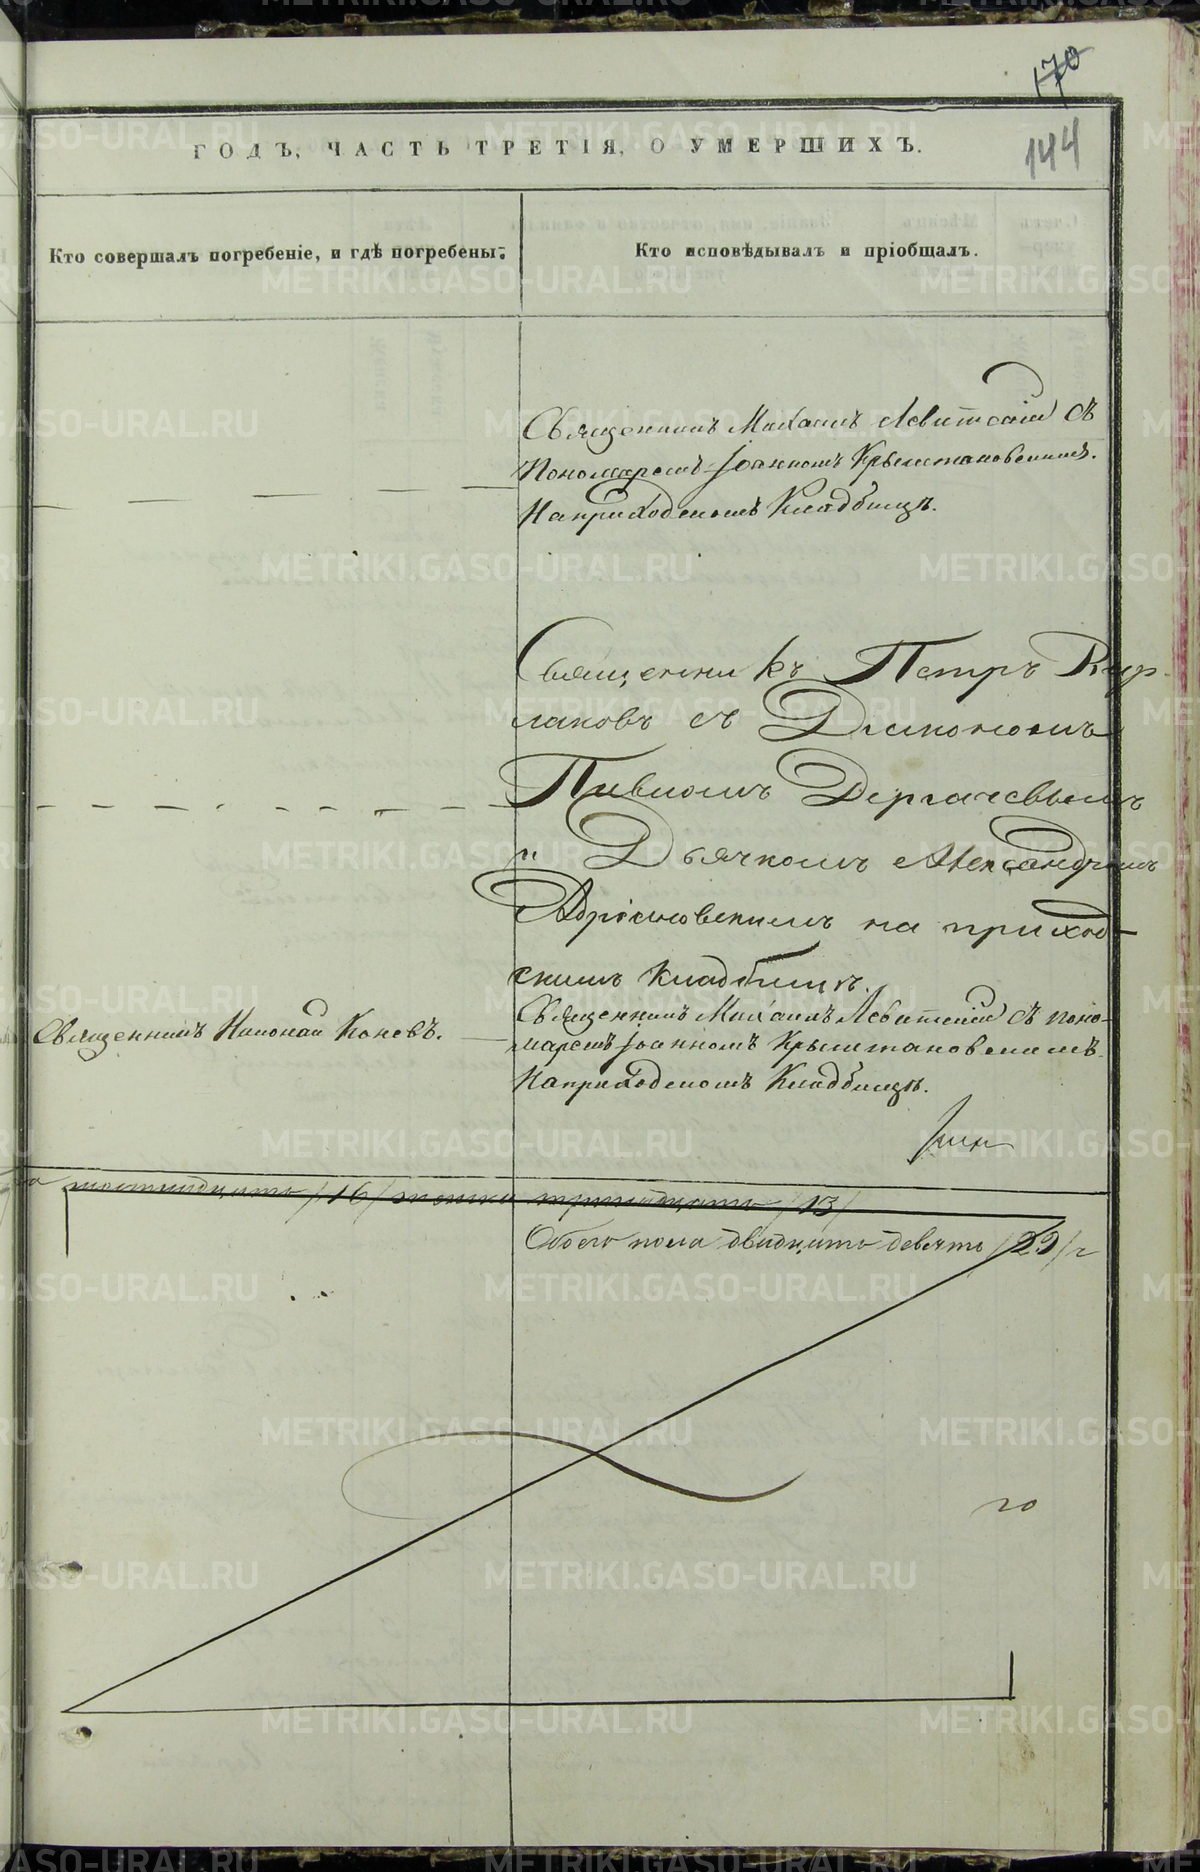 170
144
ГОДЪ, ЧАСТЬ ТРЕТІЯ, О УМЕРШИХЪ.
Кто совершалъ погребеніе, и гдѣ погребены:
Кто исповѣдывалъ и пріобщалъ.
Священникъ Михаилъ Левитскій съ
Пономаремъ Іоанномъ Крыжановскимъ.
На приходскомъ Кладбищѣ.
Священникъ Петръ Кир-
лаковъ съ Діакономъ
Павломъ Дергачевымъ
и Дьячкомъ Александромъ
Адріановскимъ на приход-
скимъ кладбищѣ.
Священникъ Николай Коневъ.
Священникъ Михаилъ Левитскій съ поно-
маремъ Іоанномъ Крыжановскимъ.
На приходскомъ Кладбищѣ.
шестнадцать /16/ женска тринадцать /13/
Обоего пола двадцать девять /29/
METRIKI.GASO-URAL.RU